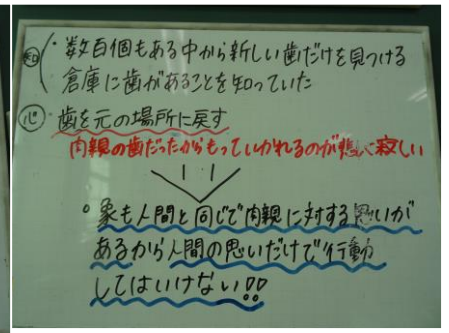 知 ・数百個もある中から新しい歯だけを見つける
倉庫に歯があることを知っていた
心 歯を元の場所に戻す
肉親の歯だったからもっていかれるのが悲しく寂しい
○象も人間と同じで肉親に対する思いが
あるから人間の思いだけで行動
してはいけない!!